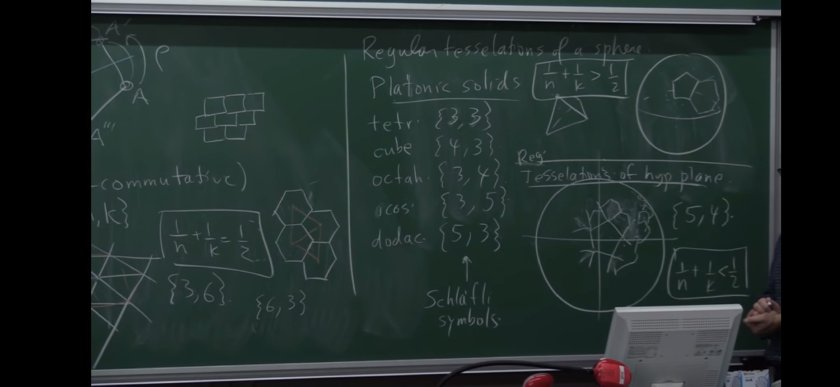 A'
ρ
A
A'''
-commutative)
, k}
1/n + 1/k = 1/2
{3,6}
{6,3}
Regular tesselations of a sphere
Platonic solids
1/n + 1/k > 1/2
tetr. {3,3}
cube {4,3}
octah. {3,4}
icos. {3,5}
dodac. {5,3}
Schläfli
symbols.
Reg.
Tesselations of hyp plane.
{5,4}.
1/n + 1/k < 1/2